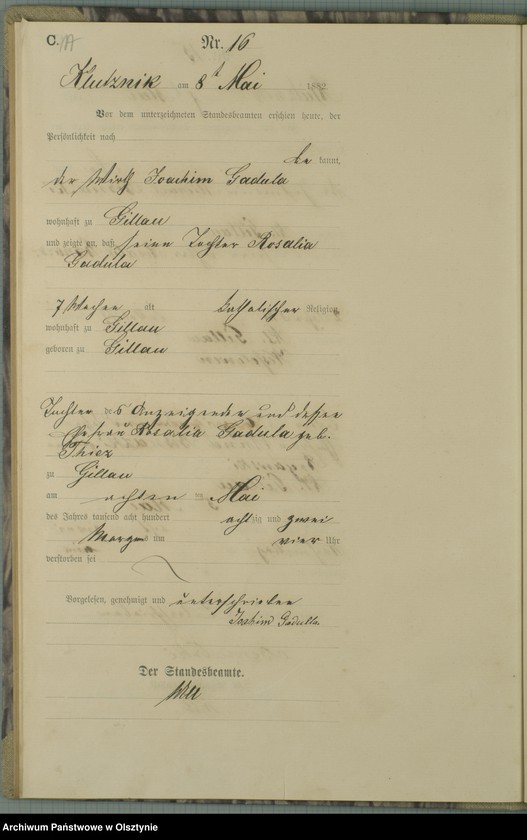 C.
Nr. 16
Klutznik am 8t Mai 1882
Vor dem unterzeichneten Standesbeamten erschien heute, der
Persönlichkeit nach
be kannt,
der Wirth Joachim Gadula
wohnhaft zu Gillau
und zeigte an, daß seine Tochter Rosalia
Gadula
7 Wochen alt katholischer Religion,
wohnhaft zu Gillau
geboren zu Gillau
Tochter des Anzeigender und dessen
Ehefrau Rosalia Gadula geb.
zu Gillau
am achten Mai
des Jahres tausend acht hundert achtzig und zwei
Morgens um vier Uhr
verstorben sei
Vorgelesen, genehmigt und unterschrieben
Joachim Gadulla
Der Standesbeamte.
Archiwum Państwowe w Olsztynie